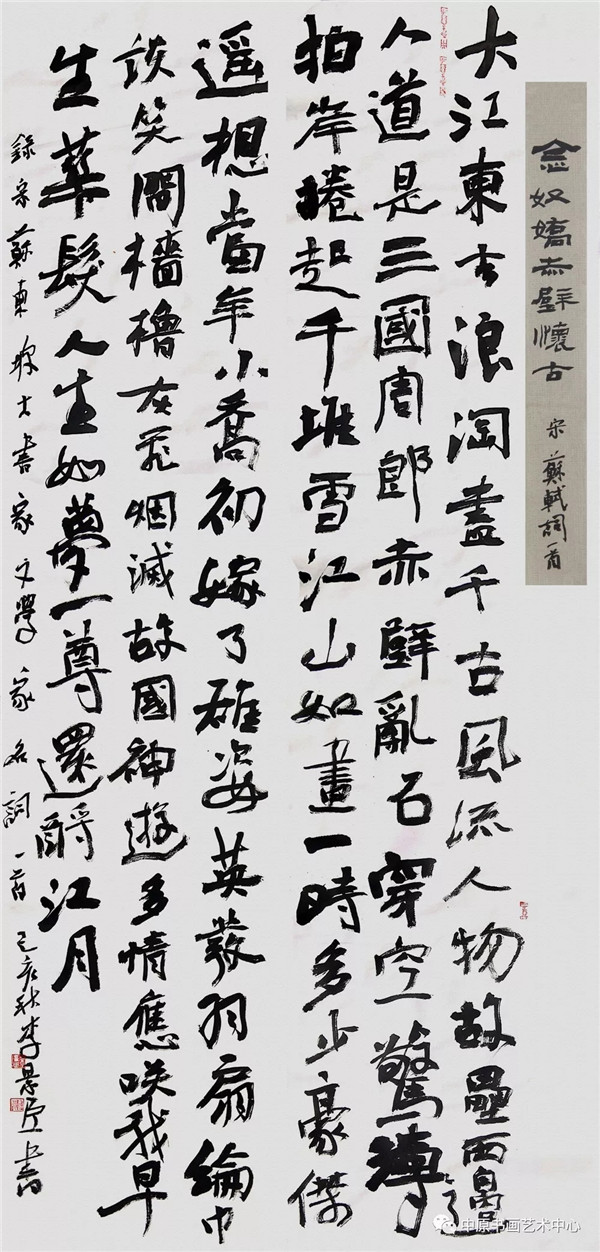 念奴嬌赤壁懷古 宋蘇軾詞一首
大江東去浪淘盡千古風流人物故壘西邊
人道是三國周郎赤壁亂石穿空驚濤
拍岸捲起千堆雪江山如畫一時多少豪傑
遥想當年小喬初嫁了雄姿英發羽扇綸巾
談笑間檣櫓灰飛烟滅故國神遊多情應咲我早
生華髮人生如夢一尊還酹江月
録宋蘇東坡大書家文學家名詞一首己亥秋李景書
中原书画艺术中心